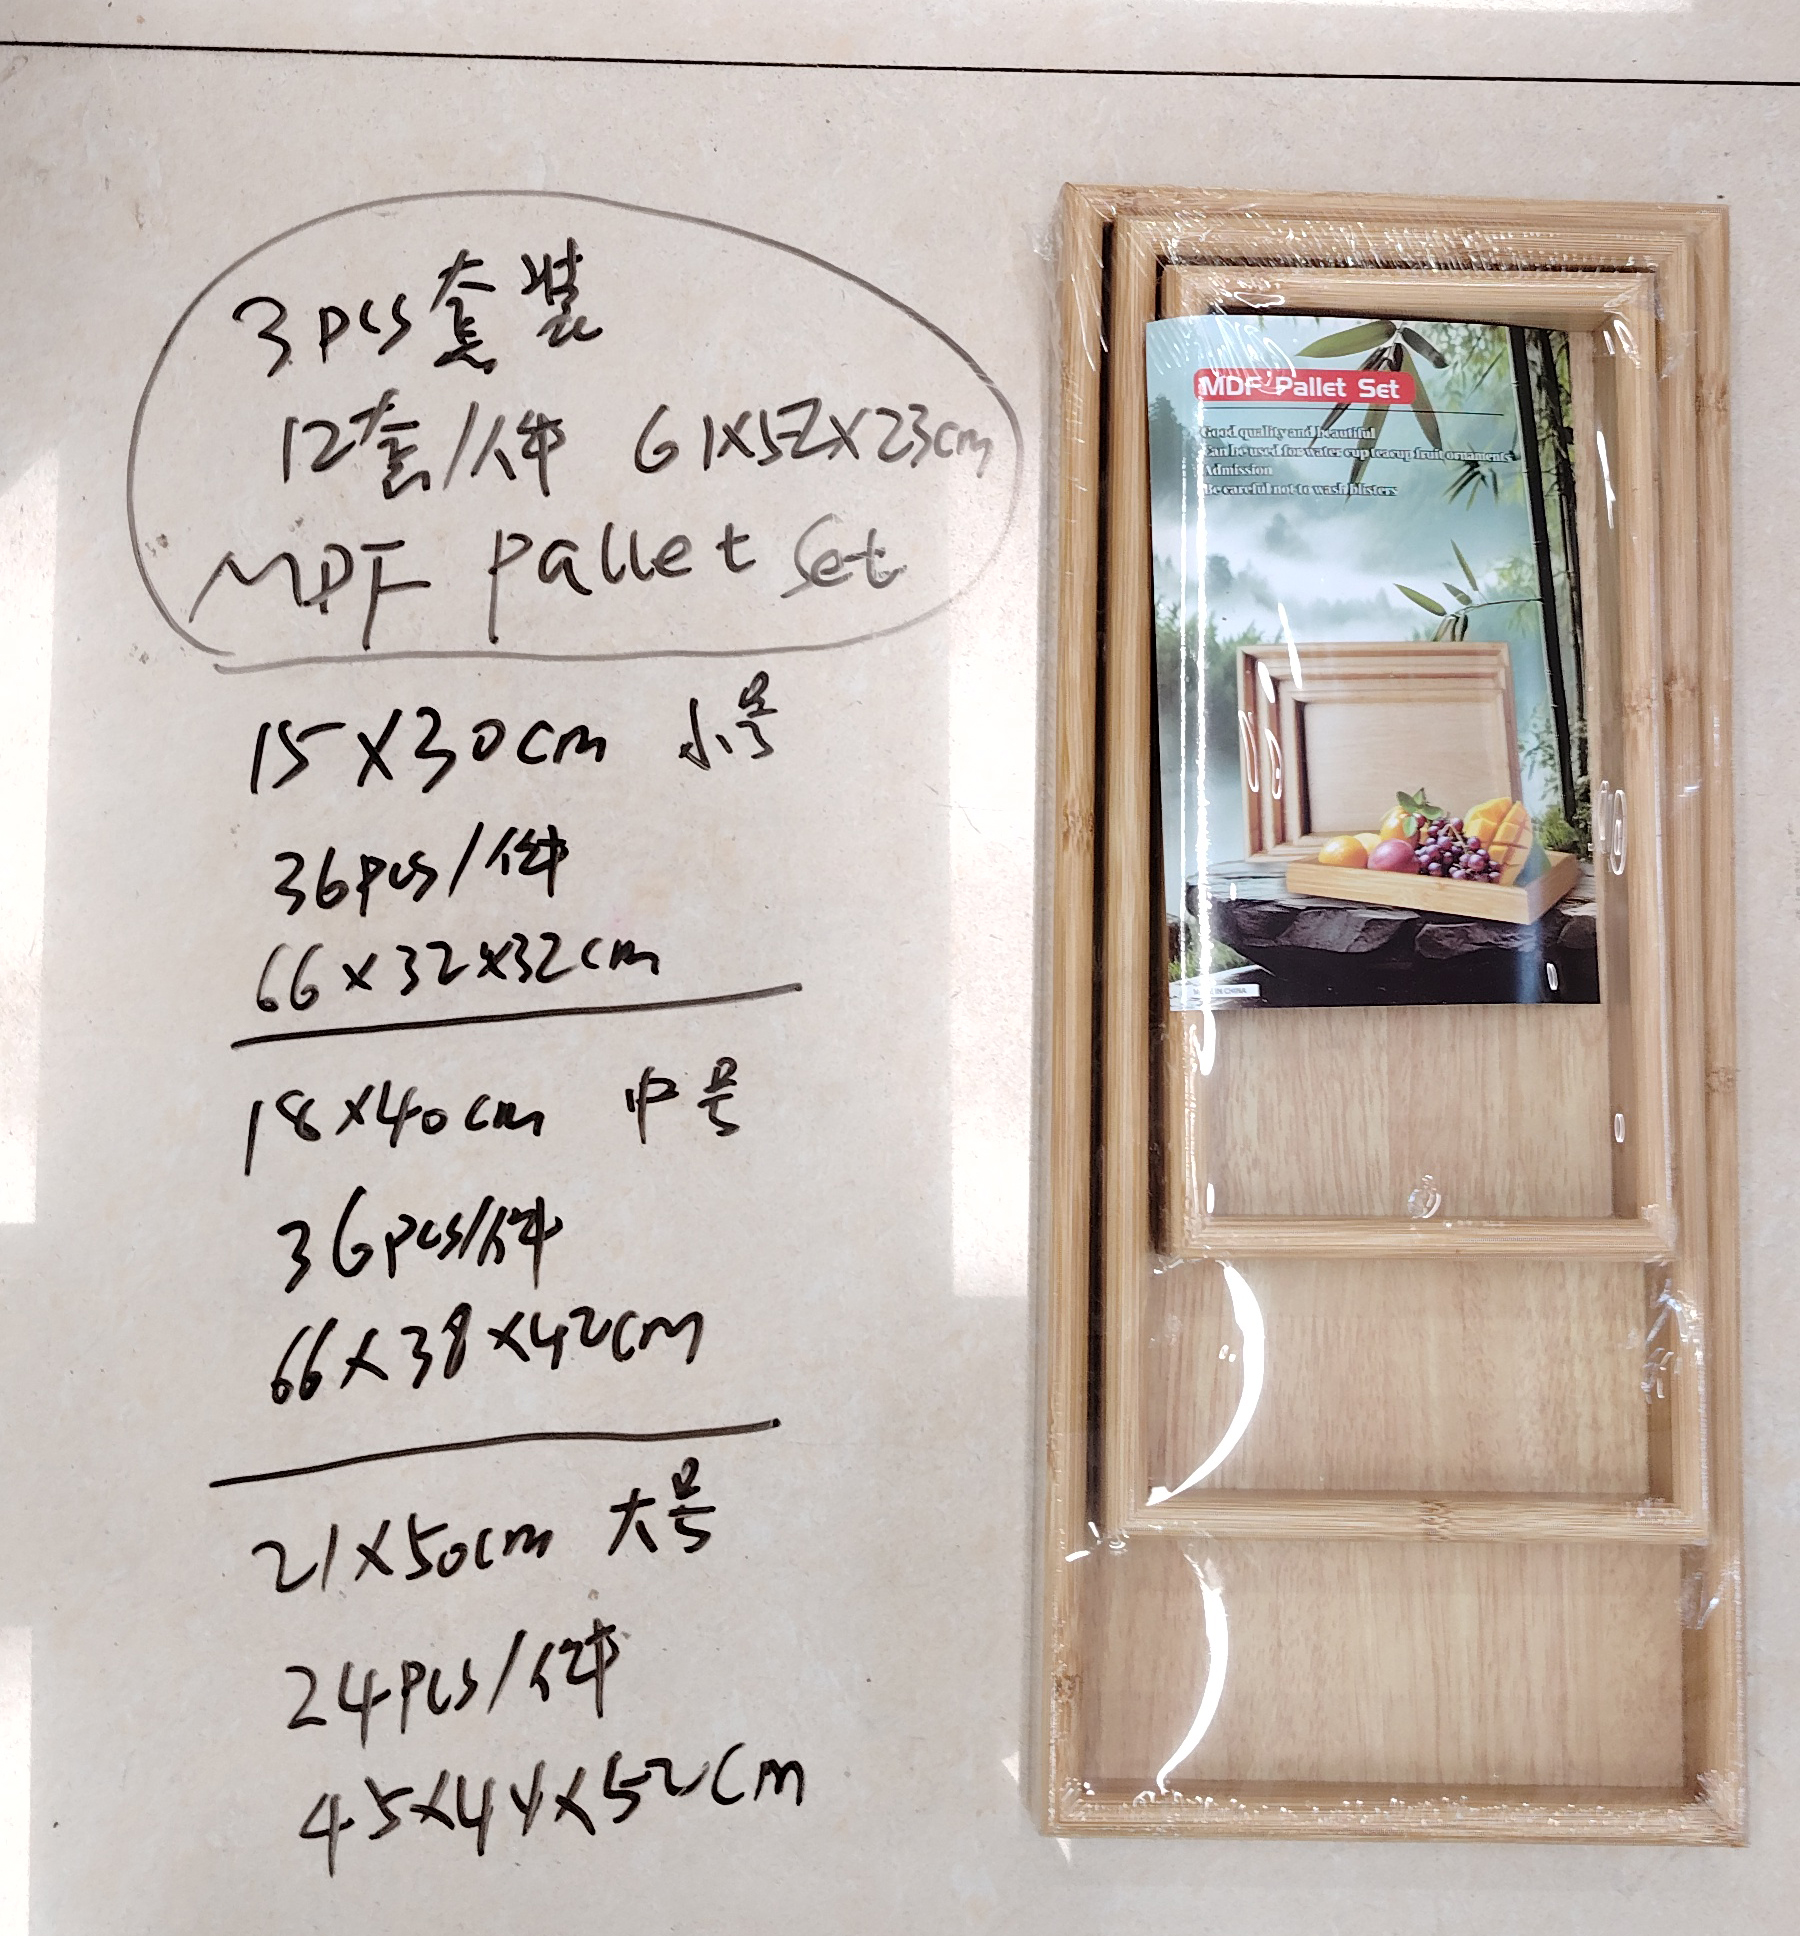 3pcs套装
12套/件 61X52X23cm
MDF Pallet Set
15X30cm 小号
36pcs/件
66X32X32cm
18X40cm 中号
36pcs/件
66X38X42cm
21X50cm 大号
24pcs/件
45X44X52cm
MDF Pallet Set
Good quality and beautiful
Can be used for water cup teacup fruit ornaments
Admission
Be careful not to wash blisters
IN CHINA